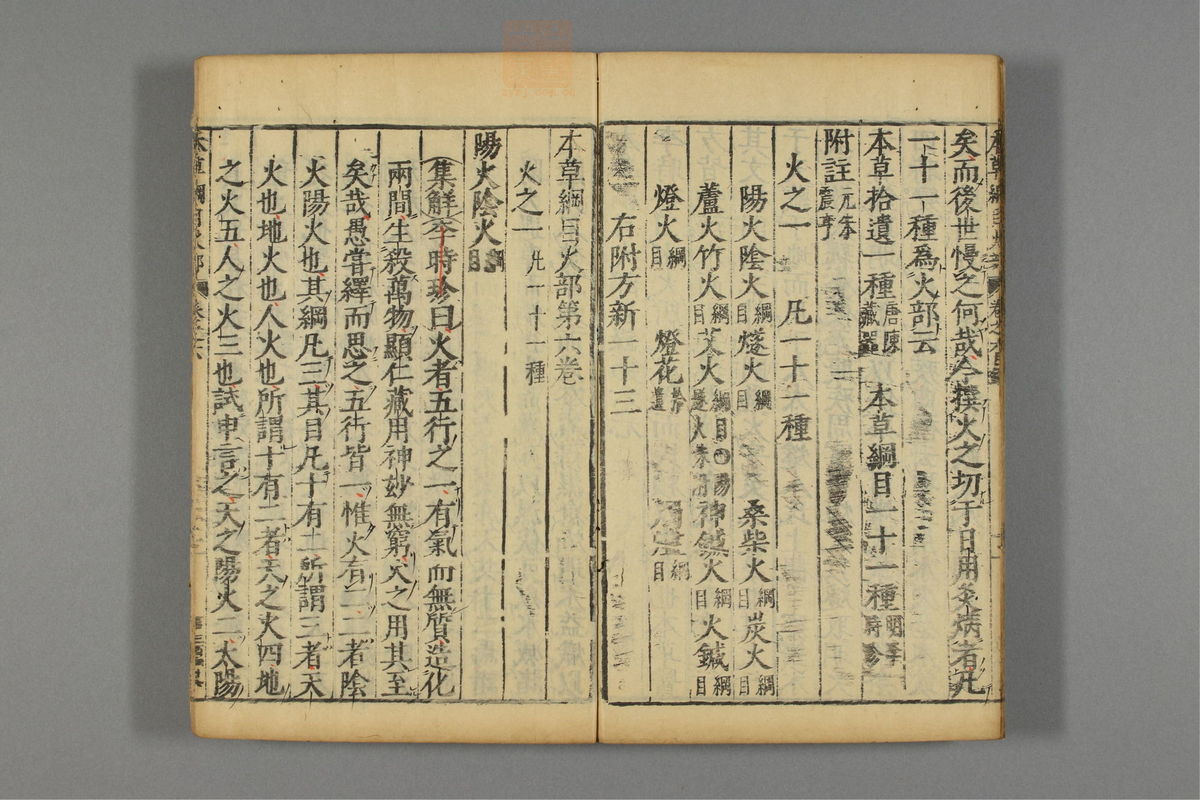 矣而後世慢之何哉今撰火之切于日用灸焫者凡
一十一種爲火部云
本草拾遺一種唐陳藏器 本草綱目一十種明李時珍
附註元朱震亨
火之一 凡一十一種
陽火陰火綱目 燧火綱目 桑柴火綱目 炭火綱目
蘆火竹火綱目 艾火綱目 神鍼火綱目 火鍼綱目
燈火綱目 燈花拾遺 綱目
右附方新一十三
本草綱目火部第六卷
火之一凡一十一種
陽火陰火綱目
集解李時珍曰火者五行之一有氣而無質造化
兩間生殺萬物顯仁藏用神妙無窮火之用其至
矣哉愚嘗繹而思之五行皆一惟火有二二者陰
火陽火也其綱凡三其目凡十有二所謂三者天
火也地火也人火也所謂十有二者天之火四地
之火五人之火三也試申言之天之陽火二太陽